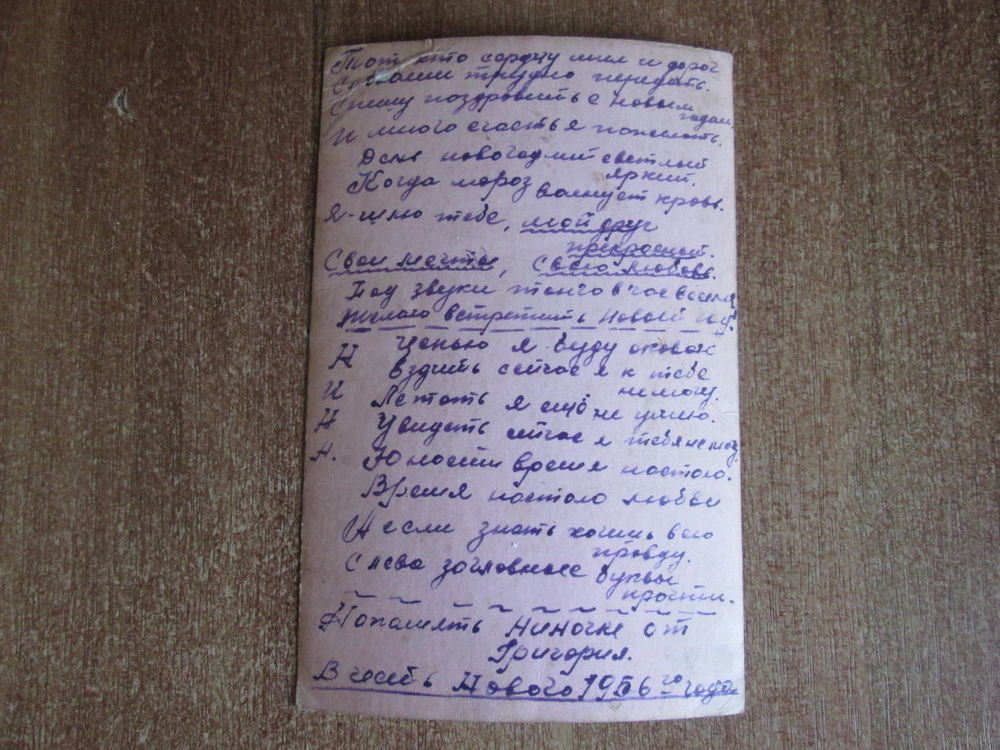 Тот кто сердцу мил и дорог
Словами трудно передать.
Спешу поздровить с новым
годом,
И много счастья пожелать.
День новогодний светлый
яркий.
Когда мороз волнует кровь.
Я-шлю тебе, мой друг
прекрасной.
Свои мечты, Свою любовь.
Под звуки танго в час веселья
Желаю встретить Новый год.
Цепью я буду окован
Н
ездить сейчас я к тебе
не могу.
И
Летать я ещё не умею.
Н
Увидеть сейчас я тебя не могу
Н.
Юности время настало.
Время настало любви
И если знать хочишь всю
правду.
Слева заглавные буквы
прочти.
На память Ниночке от
Григория.
В честь Нового 1956 го года.